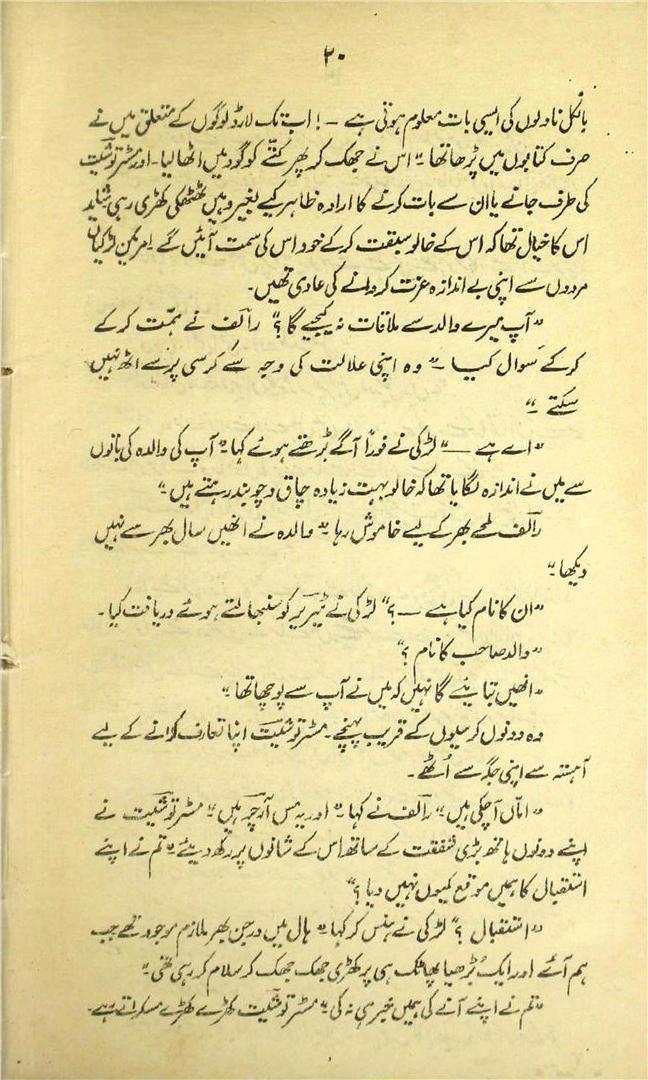 ۲۰
بالکل ناولوں کی ایسی بات معلوم ہوتی ہے ــ! اب تک لارڈ لوگوں کے متعلق میں نے
صرف کتابوں میں پڑھا تھا۔" اس نے جھک کر پھر کتّے کو گود میں اٹھا لیا۔ اور مسٹر توشیٹ
کی طرف جانے یا ان سے بات کرنے کا ارادہ ظاہر کیے بغیر وہیں ٹھٹھکی کھڑی رہی شاید
اس کا خیال تھا کہ اس کے خالو سبقت کر کے خود اس کی سمت آئیں گے۔ امریکن لڑکیاں
مردوں سے اپنی بے اندازہ عزت کروانے کی عادی تھیں۔
"آپ میرے والد سے ملاقات نہ کیجیے گا؟" رالف نے ہمّت کر کے
کر کے سوال کیا۔" وہ اپنی علالت کی وجہ سے کرسی پر سے اٹھ نہیں
سکتے۔"
"اے ہے ــ" لڑکی نے فوراً آگے بڑھتے ہوئے کہا۔" آپ کی والدہ کی باتوں
سے میں نے اندازہ لگایا تھا کہ خالو بہت زیادہ چاق و چوبند رہتے ہیں۔"
رالف لمحے بھر کے لیے خاموش رہا۔" والدہ نے انھیں سال بھر سے نہیں
دیکھا۔"
"ان کا نام کیا ہے ــ؟" لڑکی نے ٹیریر کو سنبھالتے ہوئے دریافت کیا۔
"والد صاحب کا نام؟"
"انھیں بتایئے گا نہیں کہ میں نے آپ سے پوچھا تھا۔"
وہ دونوں کرسیوں کے قریب پہنچے۔ مسٹر توشیٹ اپنا تعارف کرانے کے لیے
آہستہ سے اپنی جگہ سے اُٹھے۔
"امّاں آ چکی ہیں۔" رالف نے کہا۔" اور یہ مس آرچر ہیں۔" مسٹر توشیٹ نے
اپنے دونوں ہاتھ بڑی شفقت کے ساتھ اس کے شانوں پر رکھ دیئے۔" تم نے اپنے
استقبال کا ہمیں موقع کیوں نہیں دیا؟"
"استقبال؟" لڑکی نے ہنس کر کہا۔" ہال میں درجن بھر ملازم موجود تھے جب
ہم آئے اور ایک بُڑھیا پھاٹک ہی پر کھڑی جھک جھک کر سلام کر رہی تھی۔"
"تم نے اپنے آنے کی ہمیں خبر ہی نہ کی۔" مسٹر توشیٹ کھڑے کھڑے مسکراتے رہے۔